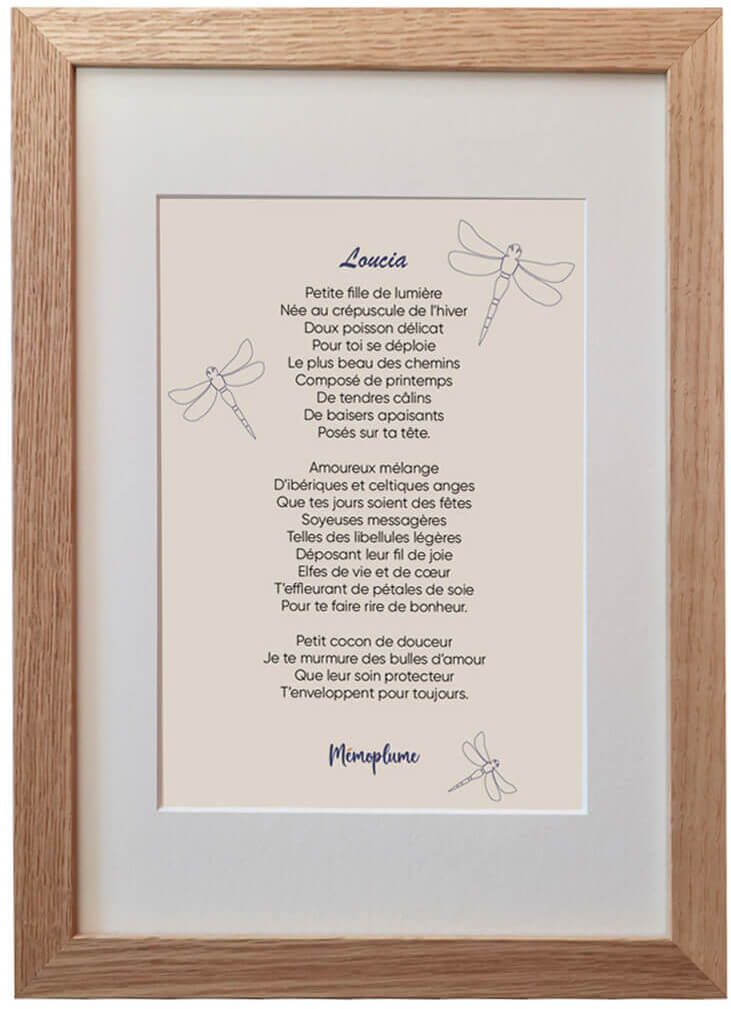 Loucia
Petite fille de lumière
Née au crépuscule de l'hiver
Doux poisson délicat
Pour toi se déploie
Le plus beau des chemins
Composé de printemps
De tendres câlins
De baisers apaisants
Posés sur ta tête.
Amoureux mélange
D'ibériques et celtiques anges
Que tes jours soient des fêtes
Soyeuses messagères
Telles des libellules légères
Déposant leur fil de joie
Elfes de vie et de cœur
T'effleurant de pétales de soie
Pour te faire rire de bonheur.
Petit cocon de douceur
Je te murmure des bulles d'amour
Que leur soin protecteur
T'enveloppent pour toujours.
Mémoplume